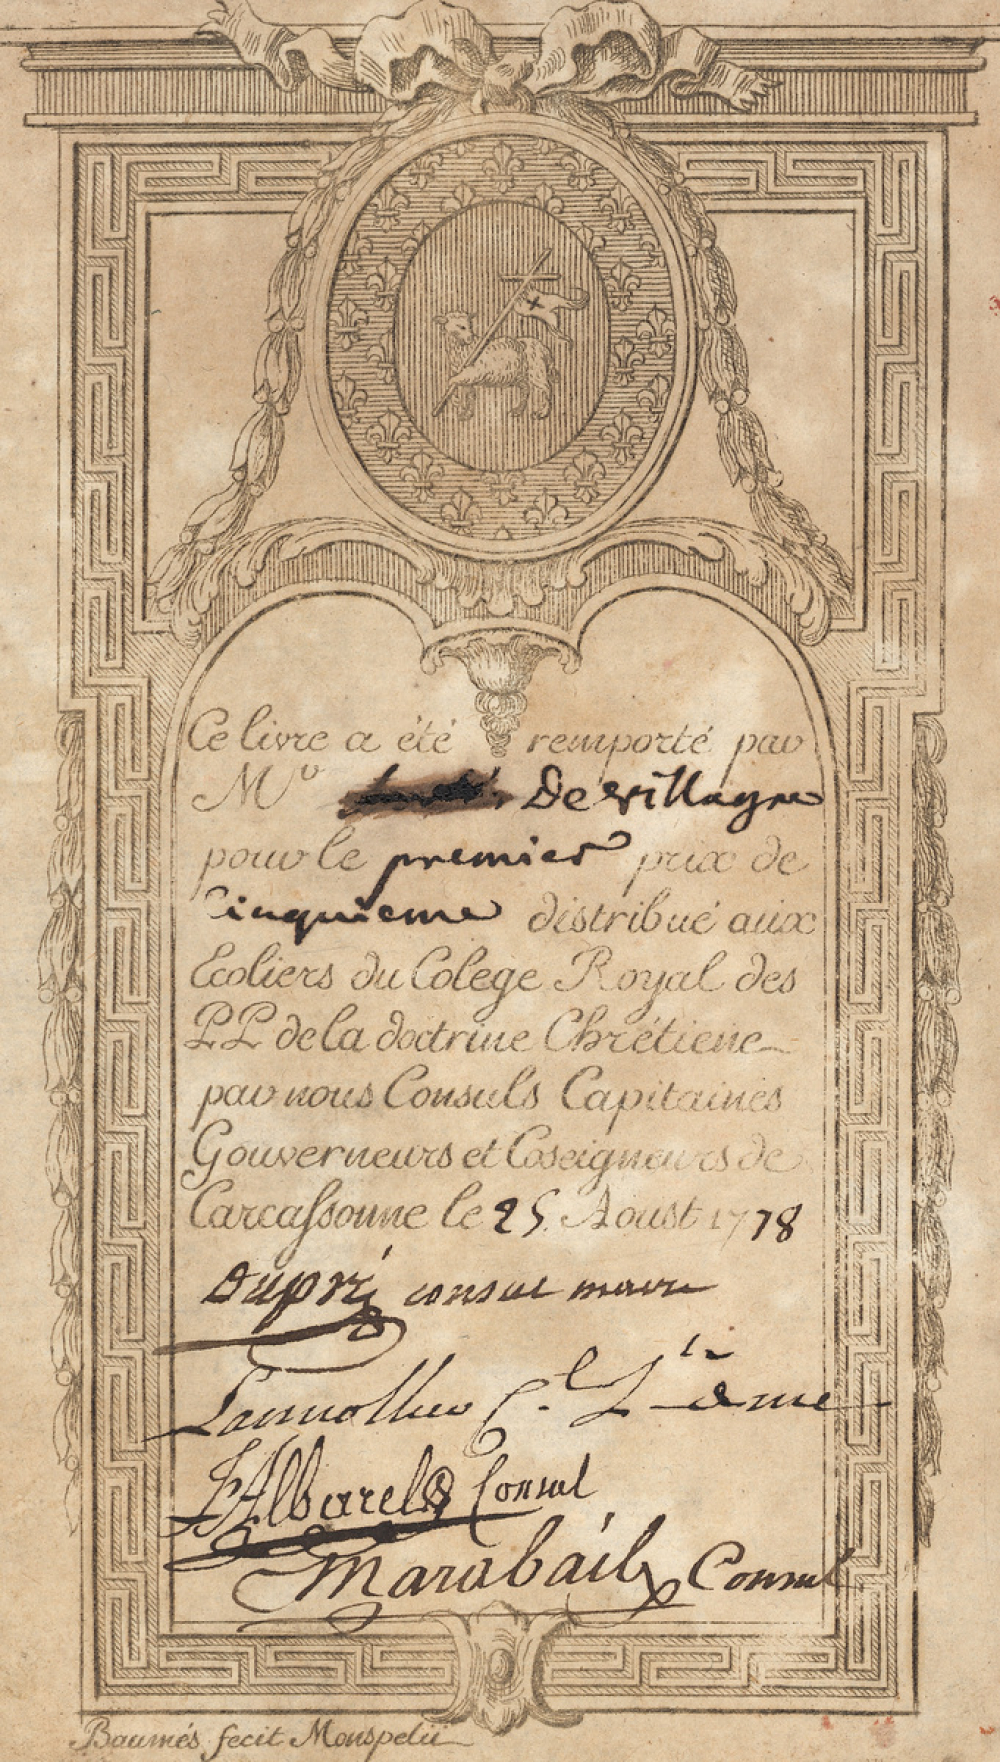 Ce livre a été remporté par
Mr De villagre
pour le premier prix de
Cinquieme distribué aux
Ecoliers du Colege Royal des
PP de la doctrine Chrétiene
par nous Consuls Capitaines
Gouverneurs et Coseigneurs de
Carcassonne le 25 Aoust 1778
Dupré consul maire
C.
L'Albarel Consul
Marabail Consul
Baumés fecit Monspelii